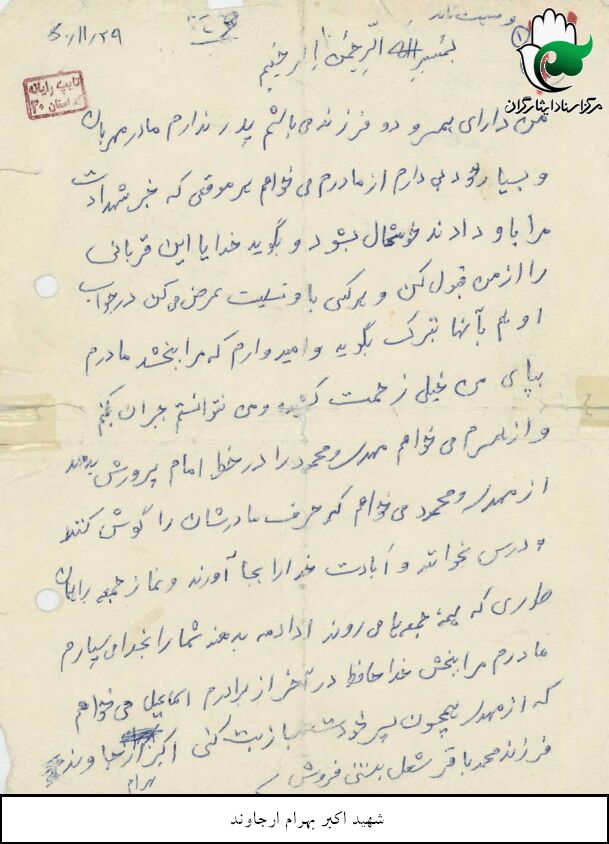 وصیت نامه
۱
۶۰/۱۱/۲۹
بسم الله الرحمن الرحیم
مرکز اسناد ایثارگران
تایپ رایانه
کد استان ۳۰
من دارای همسر و دو فرزند می باشم پدر ندارم مادر مهربان
و بسیار خوبی دارم از مادرم می خواهم هر موقعی که خبر شهادت
مرا باو دادند خوشحال بشود و بگوید خدایا این قربانی
را از من قبول کن و هر کسی باو تسلیت عرض می کن در جواب
او هم بآنها تبرک بگوید و امیدوارم که مرا ببخشد مادرم
بپای من خیلی زحمت کشیده و من نتوانستم جبران بکنم
و از همسرم می خواهم مهدی و محمود را در خط امام پرورش بدهد
از مهدی و محمود می خواهم که حرف مادرشان را گوش کنند
و درس بخوانند و آبادت خدا را بجا آورند و نماز جمعه را همان
طوری که همه جمعه ها می روند ادادمه بدهند شما را بخدا می سپارم
مادرم مرا ببخش خدا حافظ در آخر از برادرم اسماعیل می خواهم
که از مهدی همچون پسر خودت بازبت کنی اکبر ارجاوند
فرزند محمد باقر شغل بستنی فروش
بهرام
شهید اکبر بهرام ارجاوند